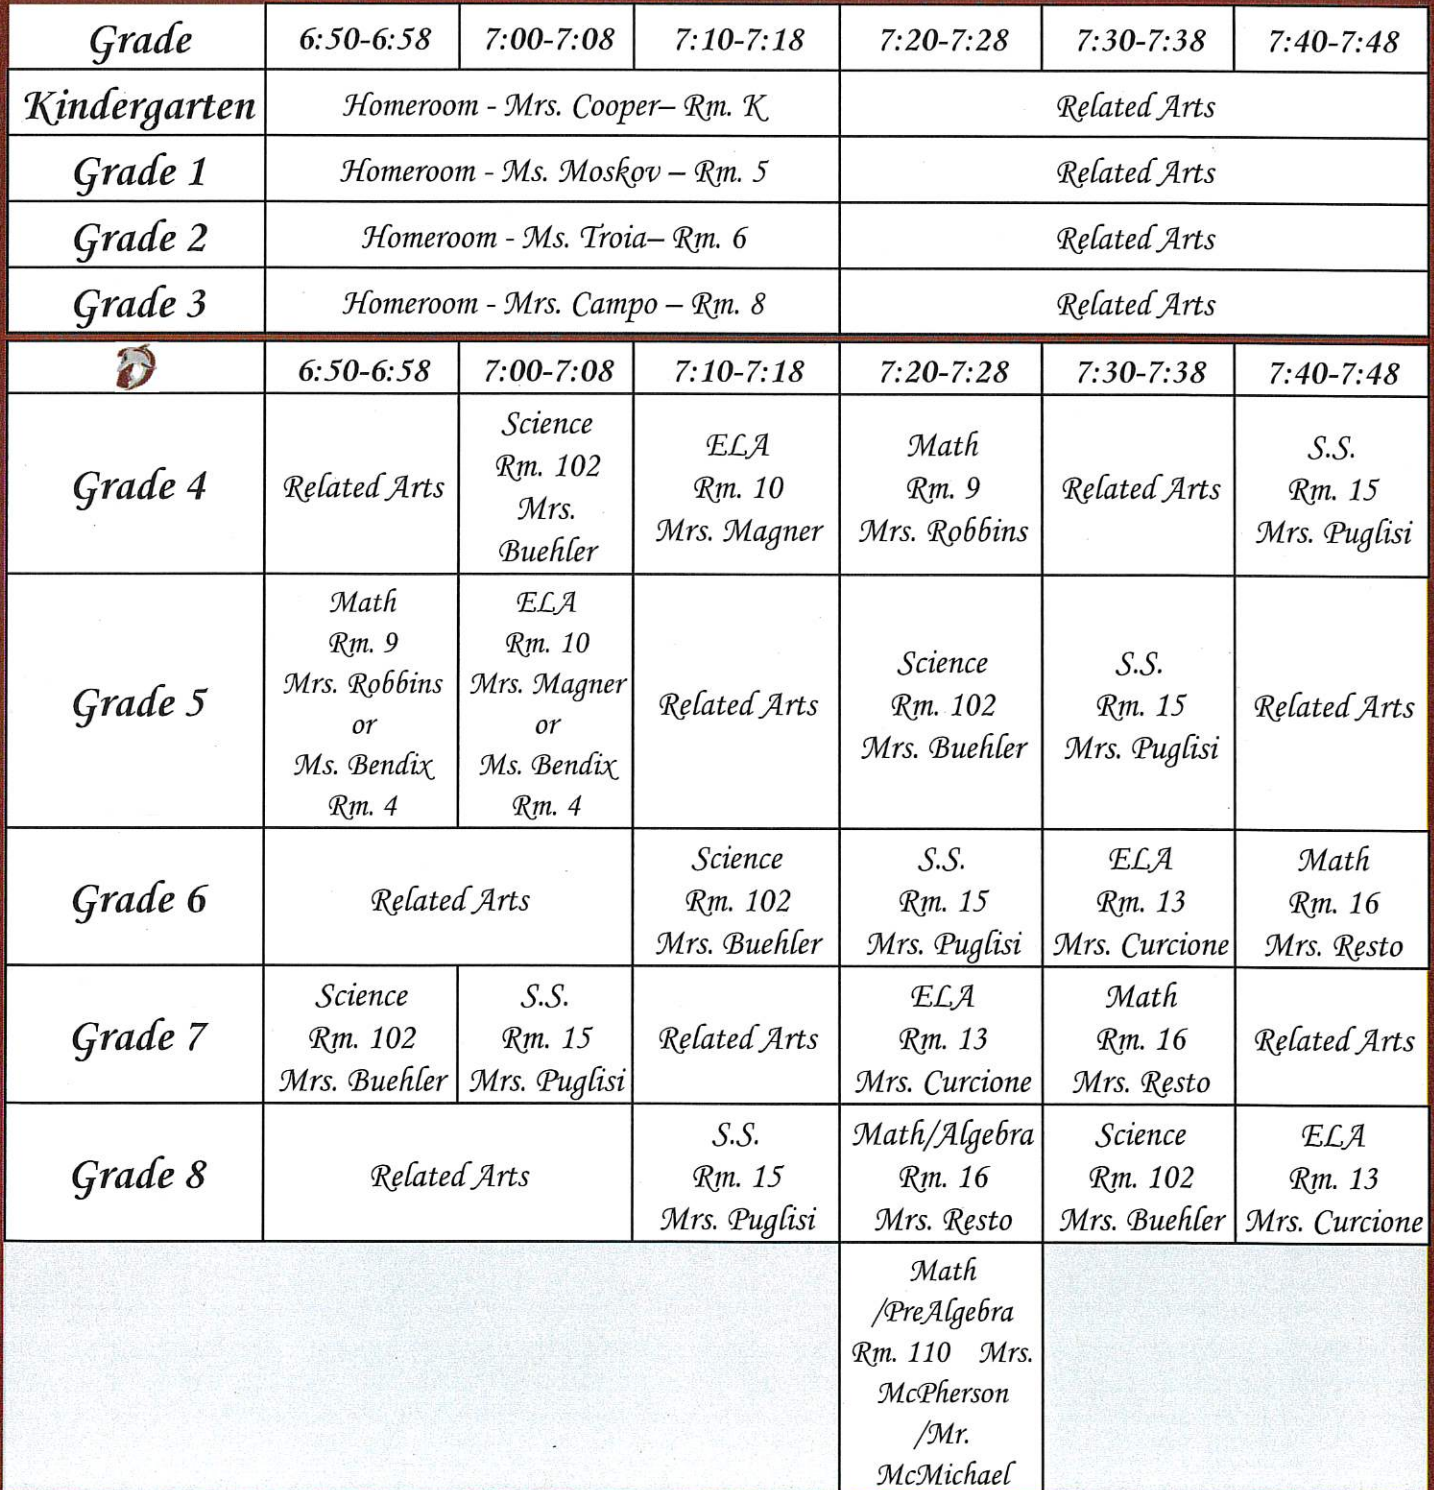 Grade 6:50-6:58 7:00-7:08 7:10-7:18 7:20-7:28 7:30-7:38 7:40-7:48
Kindergarten Homeroom - Mrs. Cooper– Rm. K Related Arts
Grade 1 Homeroom - Ms. Moskov – Rm. 5 Related Arts
Grade 2 Homeroom - Ms. Troia– Rm. 6 Related Arts
Grade 3 Homeroom - Mrs. Campo – Rm. 8 Related Arts
6:50-6:58 7:00-7:08 7:10-7:18 7:20-7:28 7:30-7:38 7:40-7:48
Grade 4
Related Arts
Science
Rm. 102
Mrs.
Buehler
ELA
Rm. 10
Mrs. Magner
Math
Rm. 9
Mrs. Robbins
Related Arts
S.S.
Rm. 15
Mrs. Puglisi
Grade 5
Math
Rm. 9
Mrs. Robbins
or
Ms. Bendix
Rm. 4
ELA
Rm. 10
Mrs. Magner
or
Ms. Bendix
Rm. 4
Related Arts
Science
Rm. 102
Mrs. Buehler
S.S.
Rm. 15
Mrs. Puglisi
Related Arts
Grade 6
Related Arts
Science
Rm. 102
Mrs. Buehler
S.S.
Rm. 15
Mrs. Puglisi
ELA
Rm. 13
Mrs. Curcione
Math
Rm. 16
Mrs. Resto
Grade 7
Science
Rm. 102
Mrs. Buehler
S.S.
Rm. 15
Mrs. Puglisi
Related Arts
ELA
Rm. 13
Mrs. Curcione
Math
Rm. 16
Mrs. Resto
Related Arts
Grade 8
Related Arts
S.S.
Rm. 15
Mrs. Puglisi
Math/Algebra
Rm. 16
Mrs. Resto
Science
Rm. 102
Mrs. Buehler
ELA
Rm. 13
Mrs. Curcione
Math
/PreAlgebra
Rm. 110 Mrs.
McPherson
/Mr.
McMichael